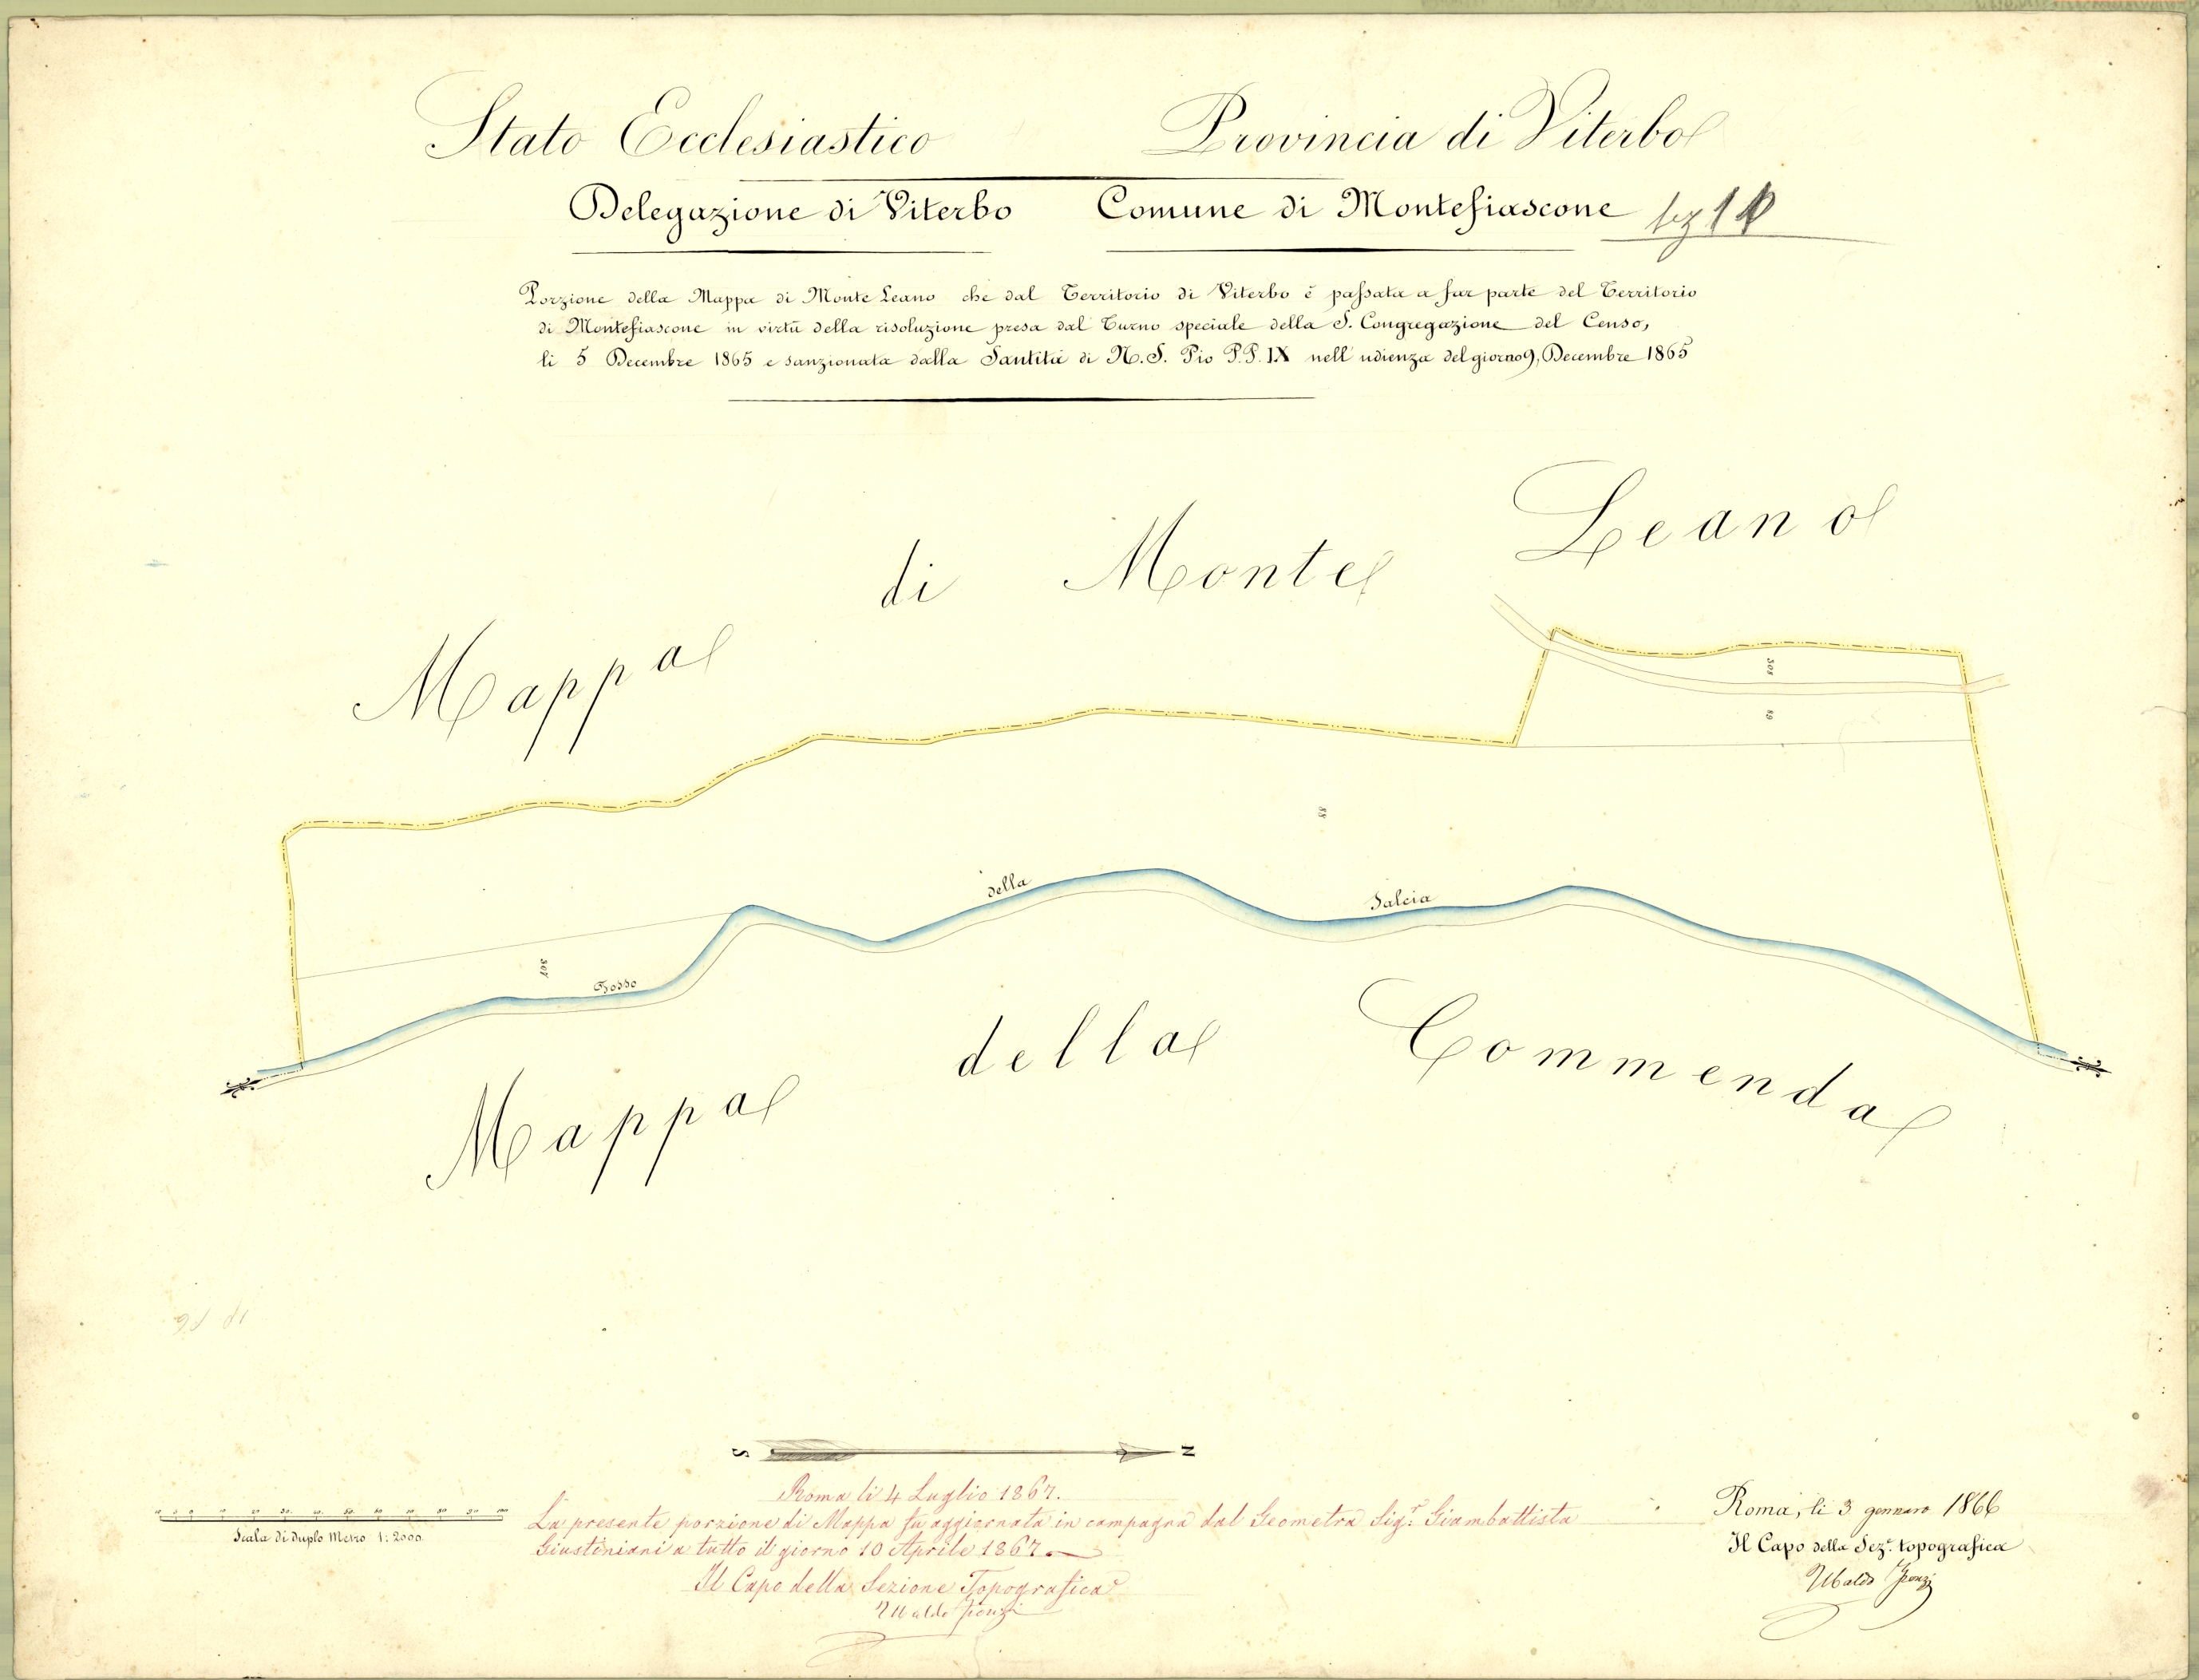 Stato Ecclesiastico Provincia di Viterbo
Delegazione di Viterbo Comune di Montefiascone
Porzione della Mappa di Monte Leano che dal Territorio di Viterbo è passata a far parte del Territorio
di Montefiascone in virtù della risoluzione presa dal Turno speciale della S. Congregazione del Censo,
li 5 Decembre 1865 e sanzionata dalla Santità di N. S. Pio P.P. IX nell'udienza del giorno 9, Decembre 1865
Mappa di Monte Leano
308
89
88
307
Fosso della Salcia
Mappa della Commenda
S N
10 5 0 10 20 30 40 50 60 70 80 90 100
Scala di duplo Metro 1:2000
Roma li 4 Luglio 1867.
La presente porzione di Mappa fu aggiornata in campagna dal Geometra Sig.r Giambattista
Giustiniani a tutto il giorno 10 Aprile 1867.
Il Capo della Sezione Topografica
Ubaldo
Roma, li 3 gennaro 1866
Il Capo della Sez.e topografica
Ubaldo